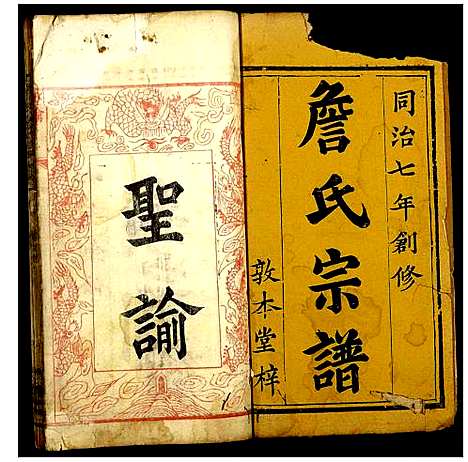 同治七年創修
詹氏宗譜
敦本堂梓
聖諭